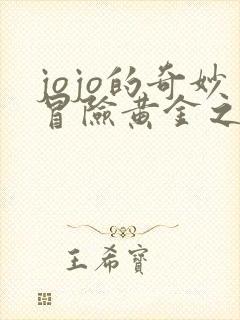 jojo的奇妙
冒險黄金之
王希寶